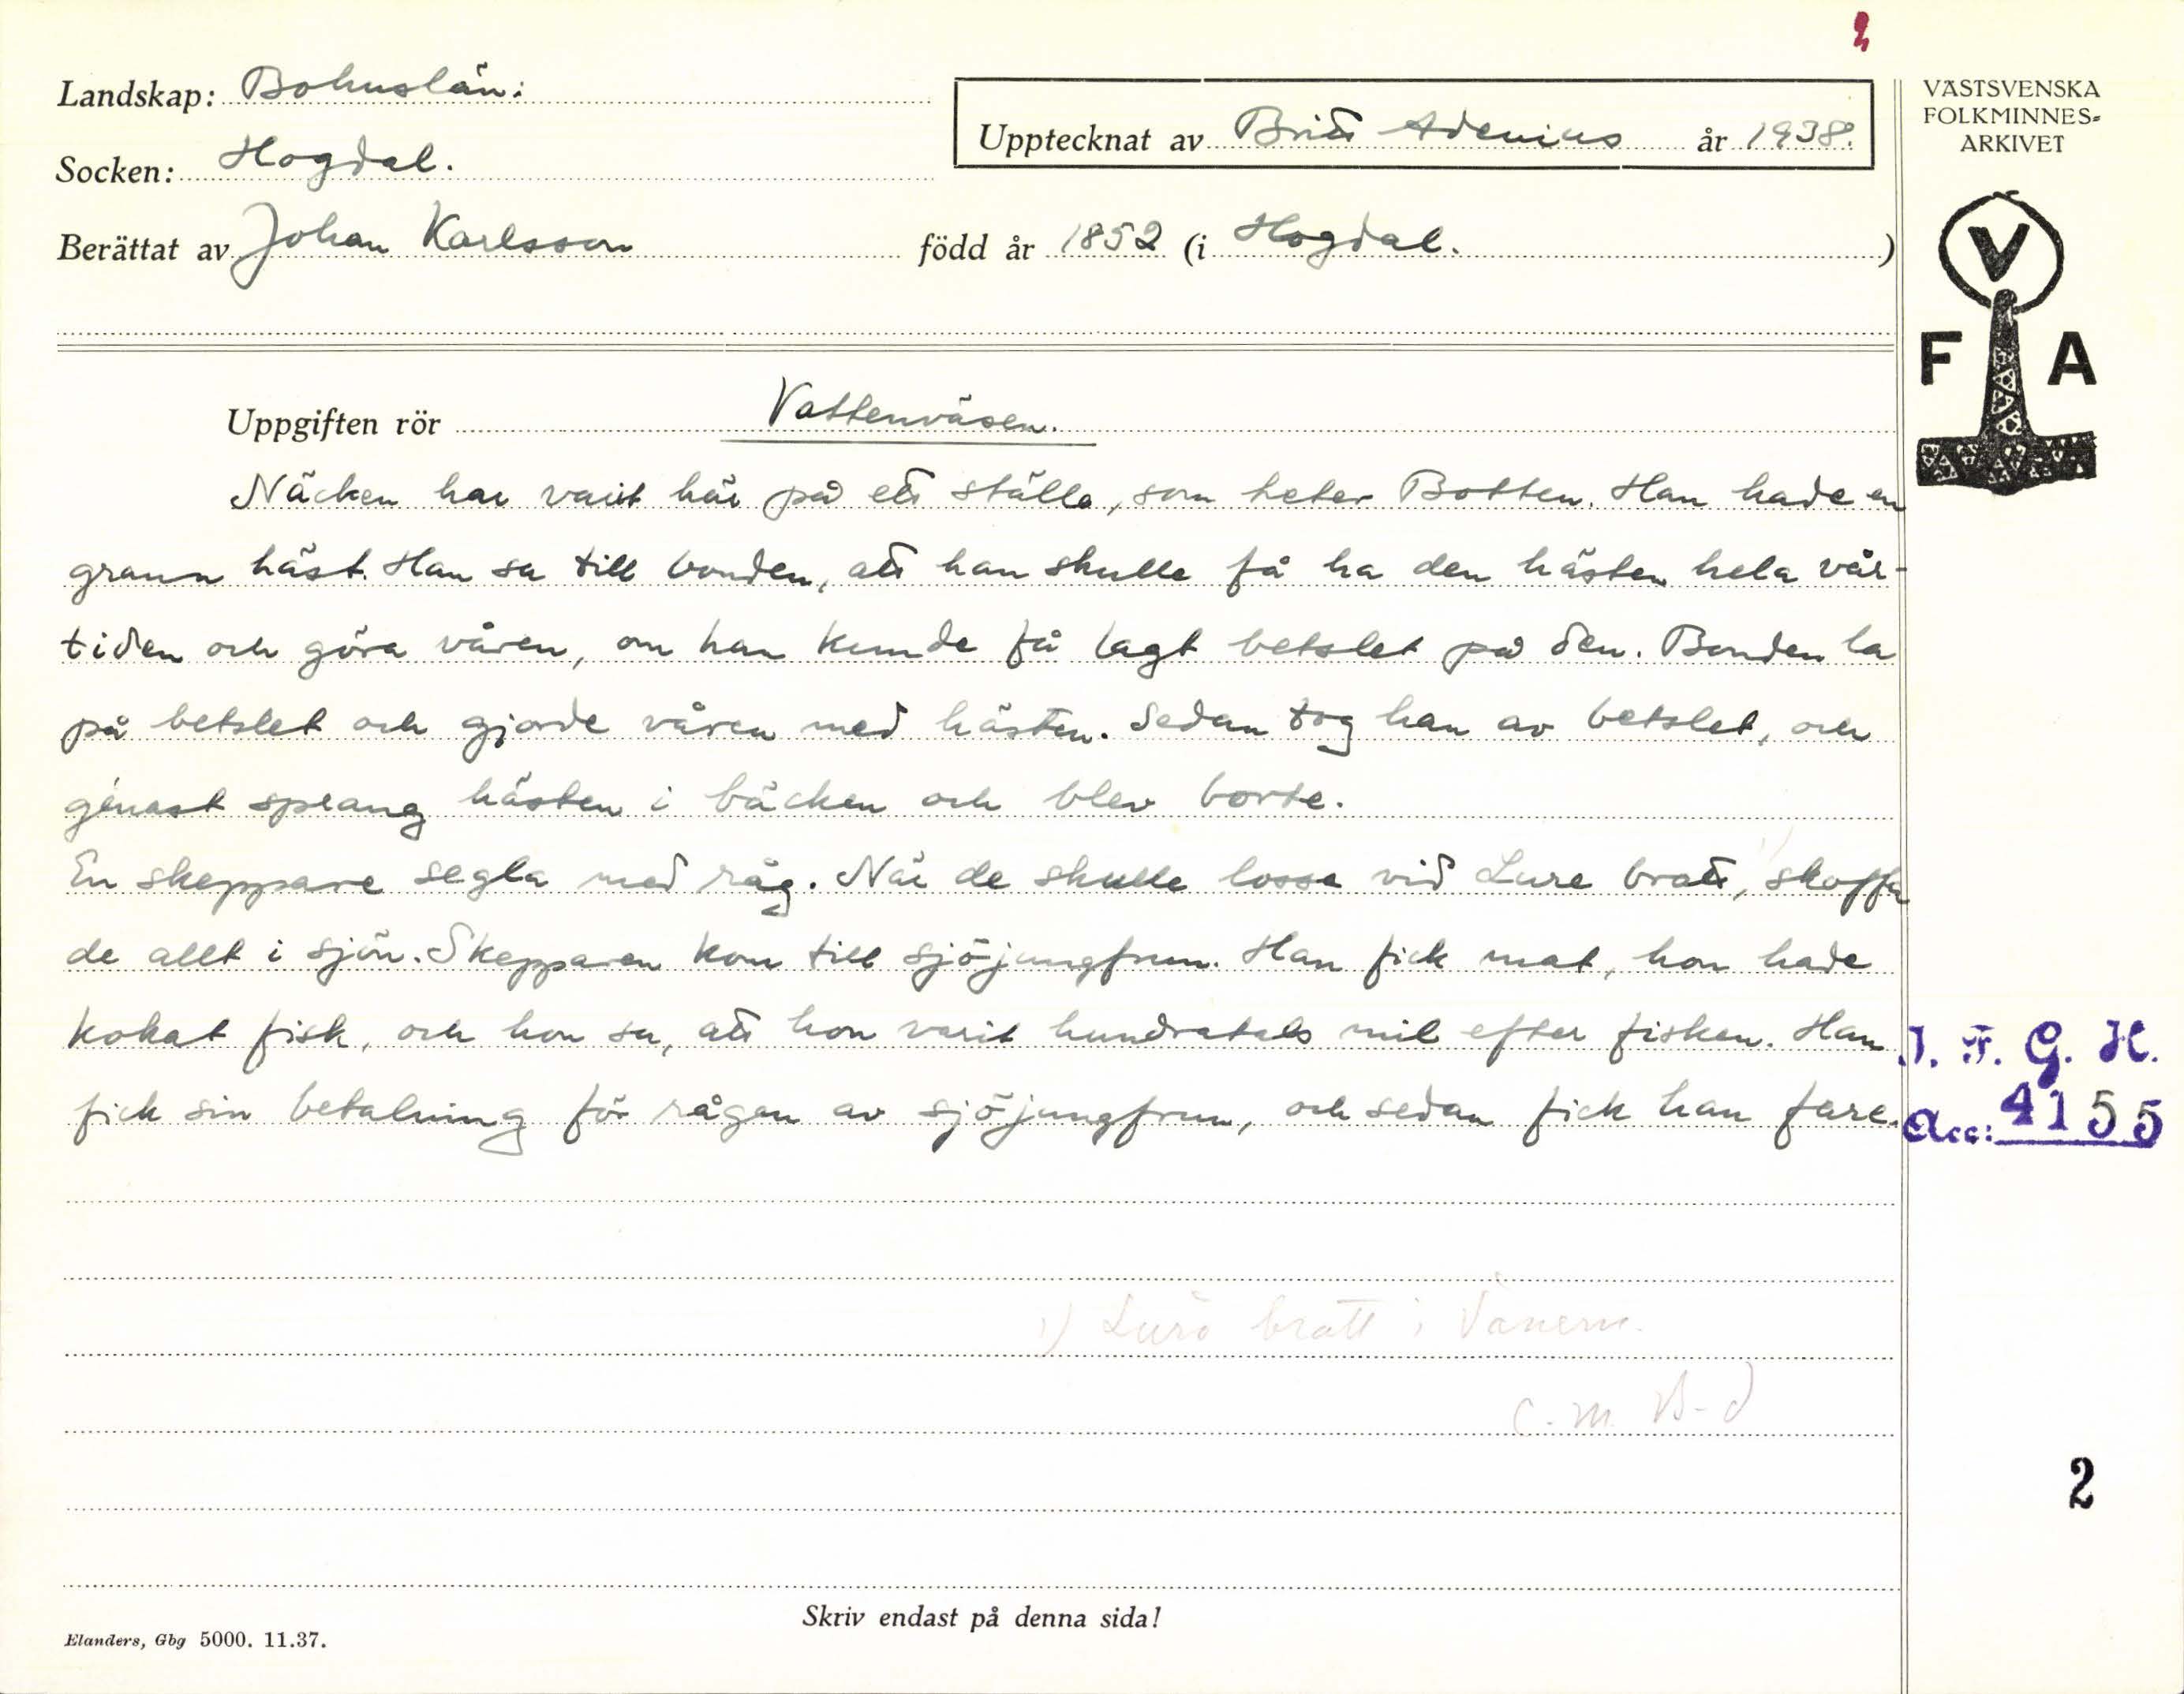 2
Landskap: Bohuslän.
Socken: Hogdal.
Upptecknat av Britt Adenius år 1938.
Berättat av Johan Karlsson född år 1852 (i Hogdal. )
VÄSTSVENSKA
FOLKMINNES=
ARKIVET
V
F A
Uppgiften rör Vattenväsen.
Näcken har varit här på ett ställe, som heter Botten. Han hade en
grann häst. Han sa till bonden, att han skulle få ha den hästen hela vår-
tiden och göra våren, om han kunde få lagt betslet på den. Bonden la
på betslet och gjorde våren med hästen. Sedan tog han av betslet, och
genast sprang hästen i bäcken och blev borte.
En skeppare segla med råg. När de skulle lossa vid Lure bratt, 1) skoffa
de allt i sjön. Skepparen kom till sjöjungfrun. Han fick mat, hon hade
kokat fisk, och hon sa, att hon varit hundratals mil efter fisken. Han
fick sin betalning för rågen av sjöjungfrun, och sedan fick han fare.
I. F. G. H.
Acc: 4155
1) Lurö bratt i Vänern.
C. M. B-d
2
Skriv endast på denna sida!
Elanders, Gbg 5000. 11.37.